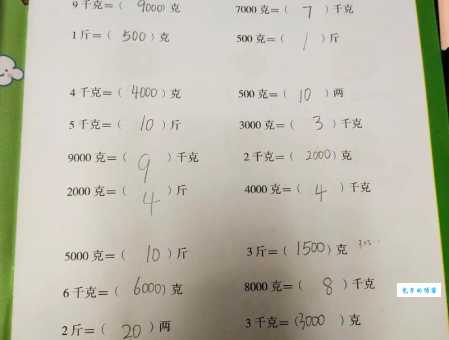 9 千克=( 9000 ) 克 7000 克=( 7 ) 千克
1 斤=( 500 ) 克 500 克=( 1 ) 斤
4 千克=( 4000 ) 克 500 克=( 10 ) 两
5 千克=( 10 ) 斤 3000 克=( 3 ) 千克
9000 克=( 9 ) 千克 2 千克=( 2000 ) 克
2000 克=( 4 ) 斤 4000 克=( 4 ) 千克
5000 克=( 10 ) 斤 3 斤=( 1500 ) 克
6 千克=( 6000 ) 克 8000 克=( 8 ) 千克
2 斤=( 20 ) 两 3 千克=( 3000 ) 克